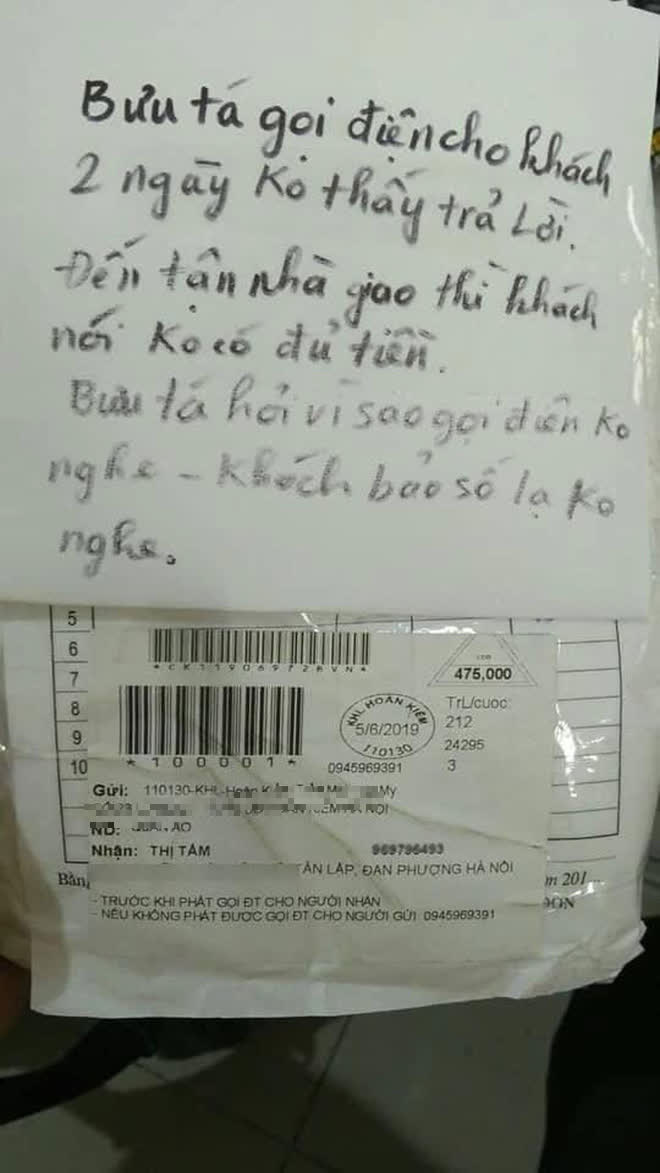 Bưu tá gọi điện cho khách
2 ngày Ko thấy trả Lời.
Đến tận nhà giao thì khách
nói Ko có đủ tiền.
Bưu tá hỏi vì sao gọi điện Ko
nghe - Khách bảo số lạ Ko
nghe.
5
6
7
8
9
10
*CK119069728VN*
475,000
*100001*
KHL HOÀN KIẾM
5/6/2019
110130
TrL/cuoc:
212
24295
3
0945969391
Gửi: 110130-KHL-Hoàn
My
NỘI
ND: QUẦN ÁO
Nhận: THỊ TÂM
969796493
TÂN LẬP, ĐAN PHƯỢNG HÀ NỘI
- TRƯỚC KHI PHÁT GỌI ĐT CHO NGƯỜI NHẬN
- NẾU KHÔNG PHÁT ĐƯỢC GỌI ĐT CHO NGƯỜI GỬI 0945969391
Bằng
m 201...